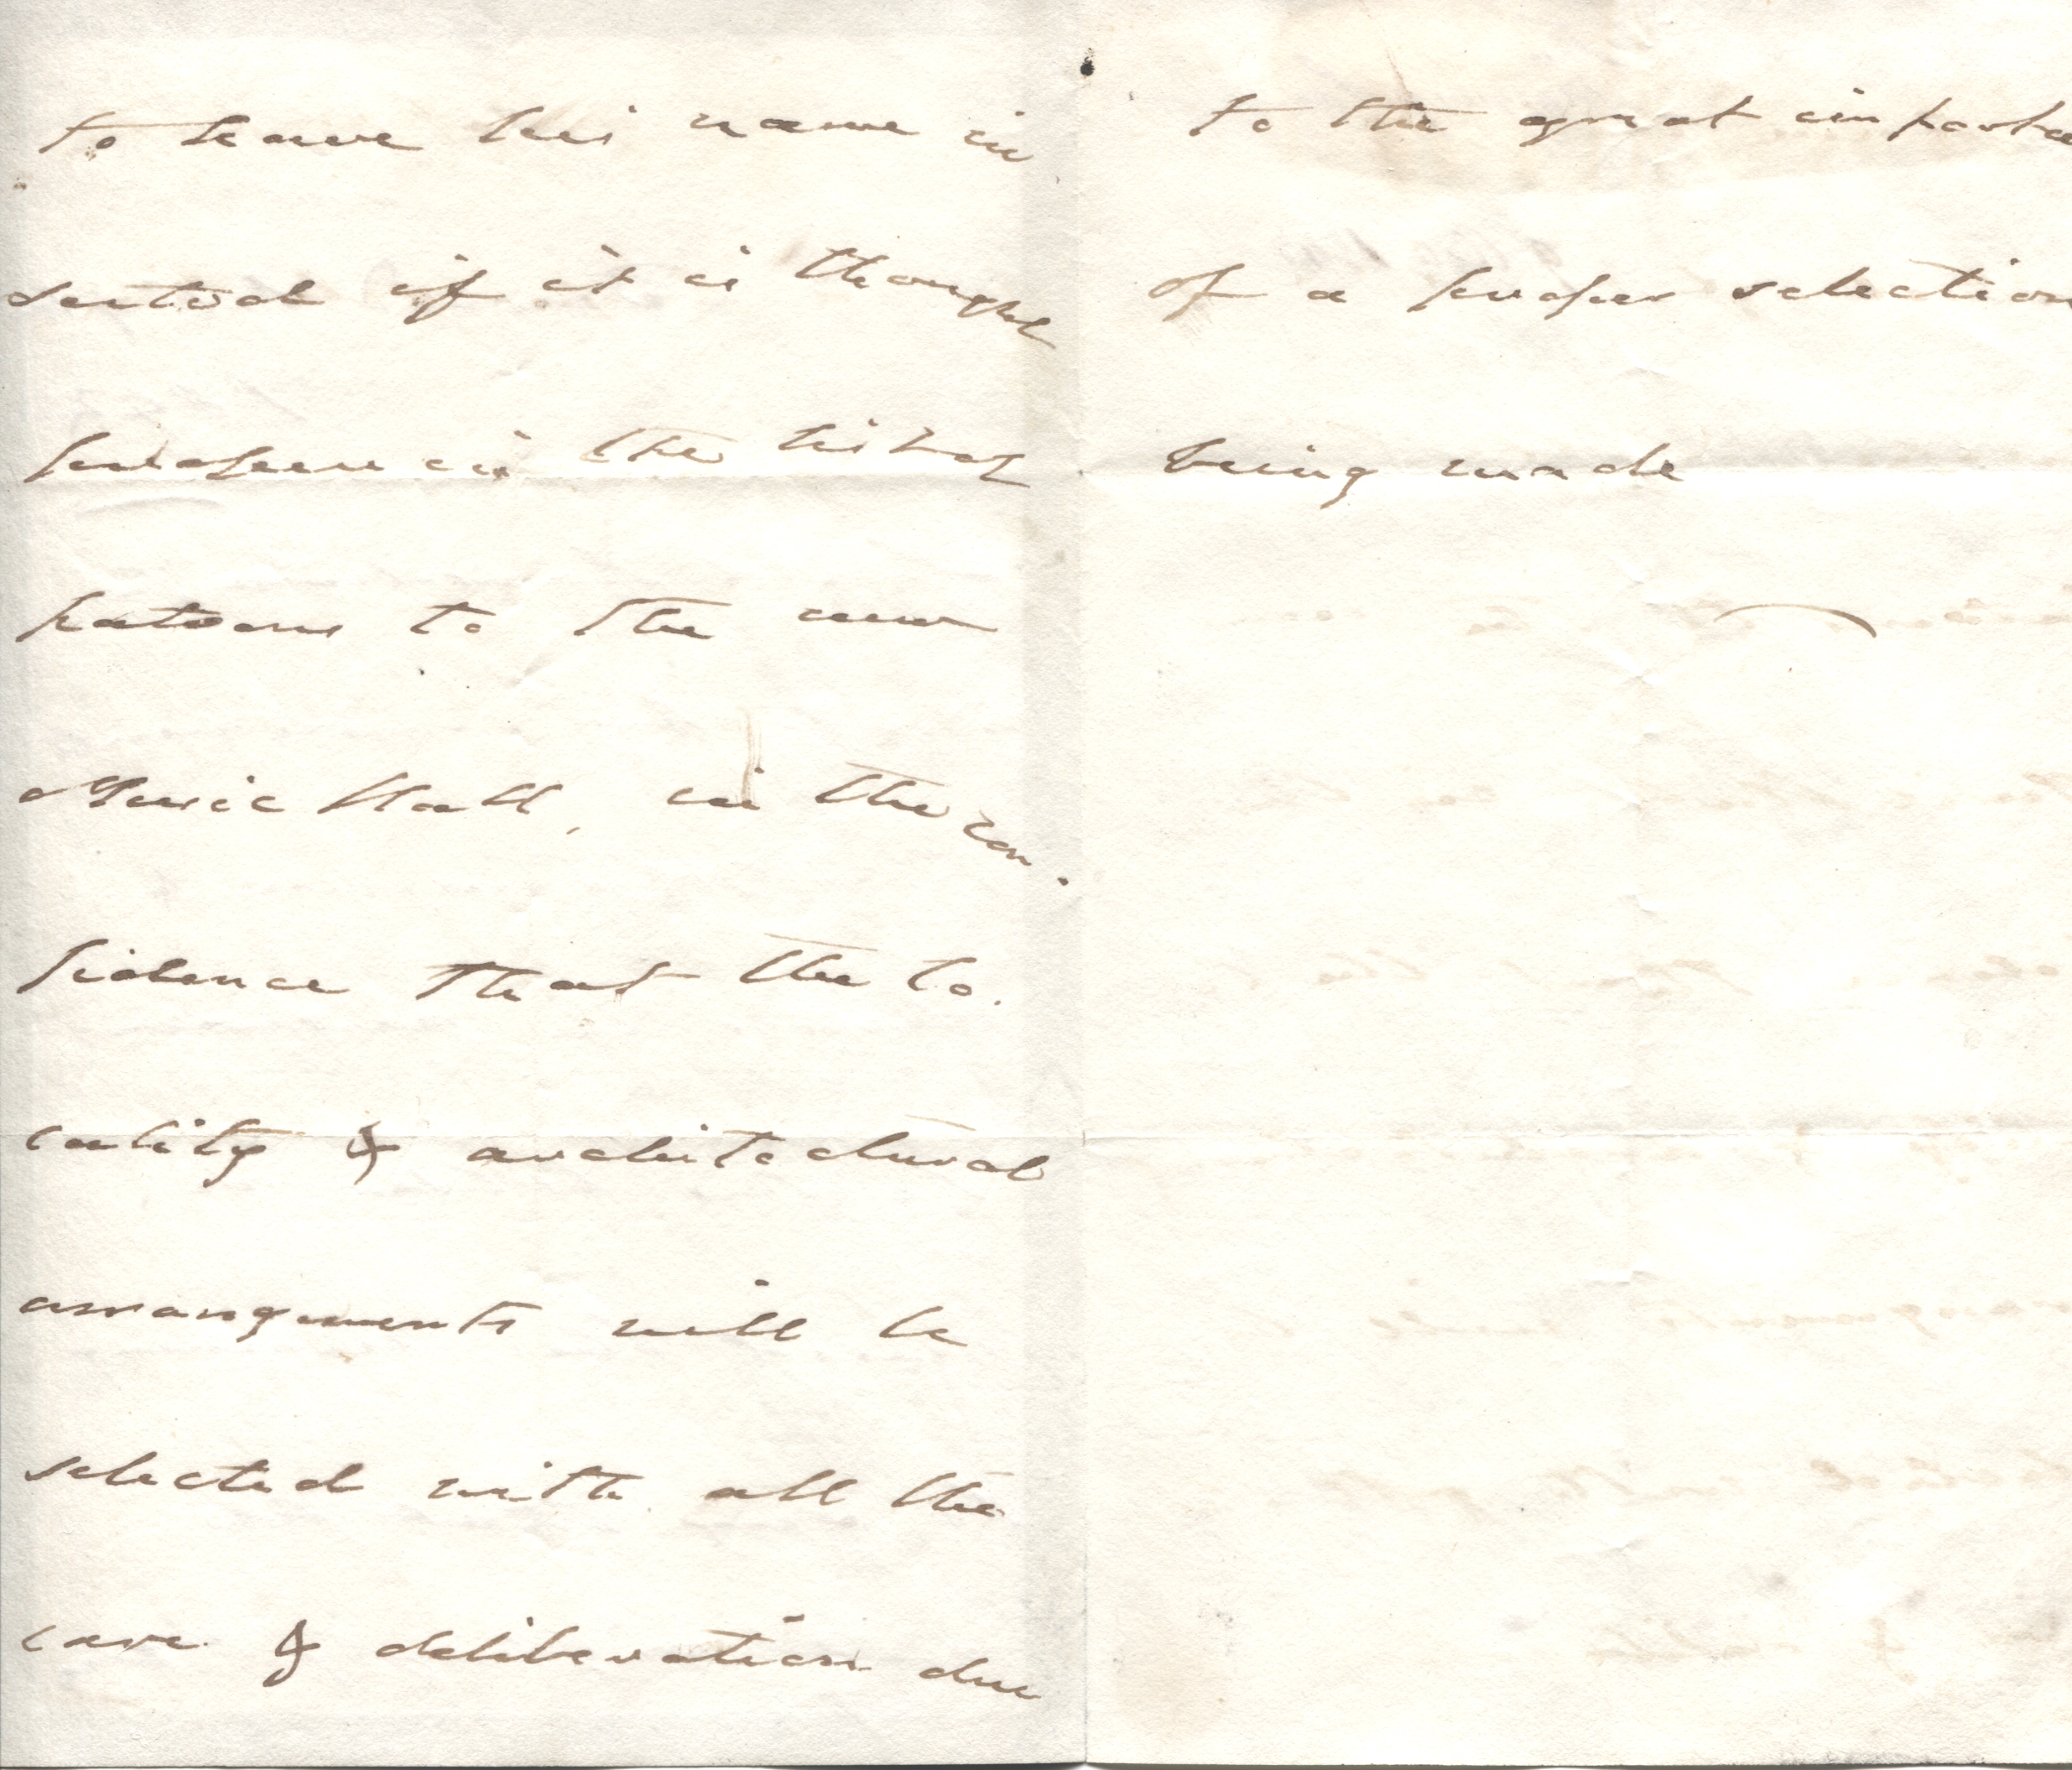 to have his name in
serted if it is thought
proper in the list of
patrons to the new
Music Hall, in the con.
fidence that the lo.
cality & architectural
arrangements will be
selected with all the
care & deliberation due
to the great importa
of a proper selection
being made